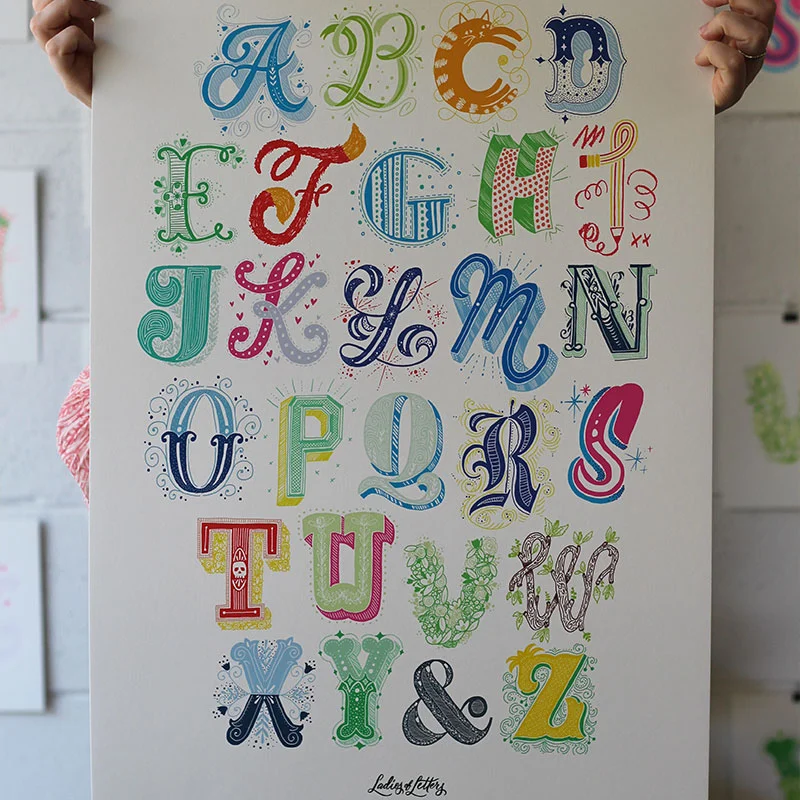 A B C D
E F G H I
J K L M N
O P Q R S
T U V W
X Y & Z
Ladies of Letters